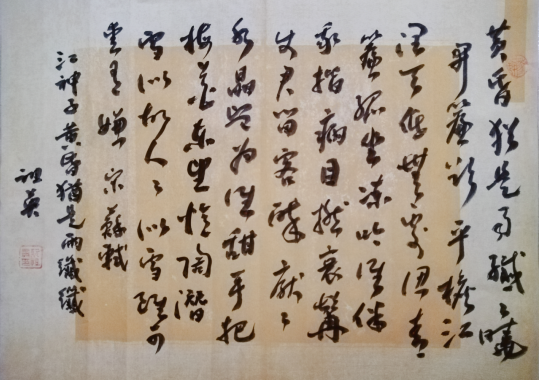 黄昏猶是雨纖〻曉
開簾欲平檐江
闊天低無處認青
簾孤坐凍吟誰伴
我揩病目撚衰髯
使君留客醉厭〻
水晶鹽為誰甜手把
梅花東望憶陶潛
雪似故人〻似雪雖可
愛有嫌 宋蘇軾
江神子黄昏猶是雨纖纖
祖英